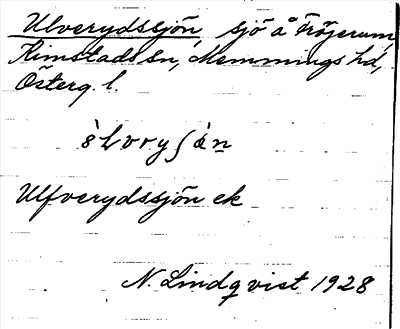 Ulverydssjön, sjö å Fröjerum,
Rimstads sn, Memmings hd,
Österg. l.
Ulfverydssjön ek
N. Lindqvist 1928